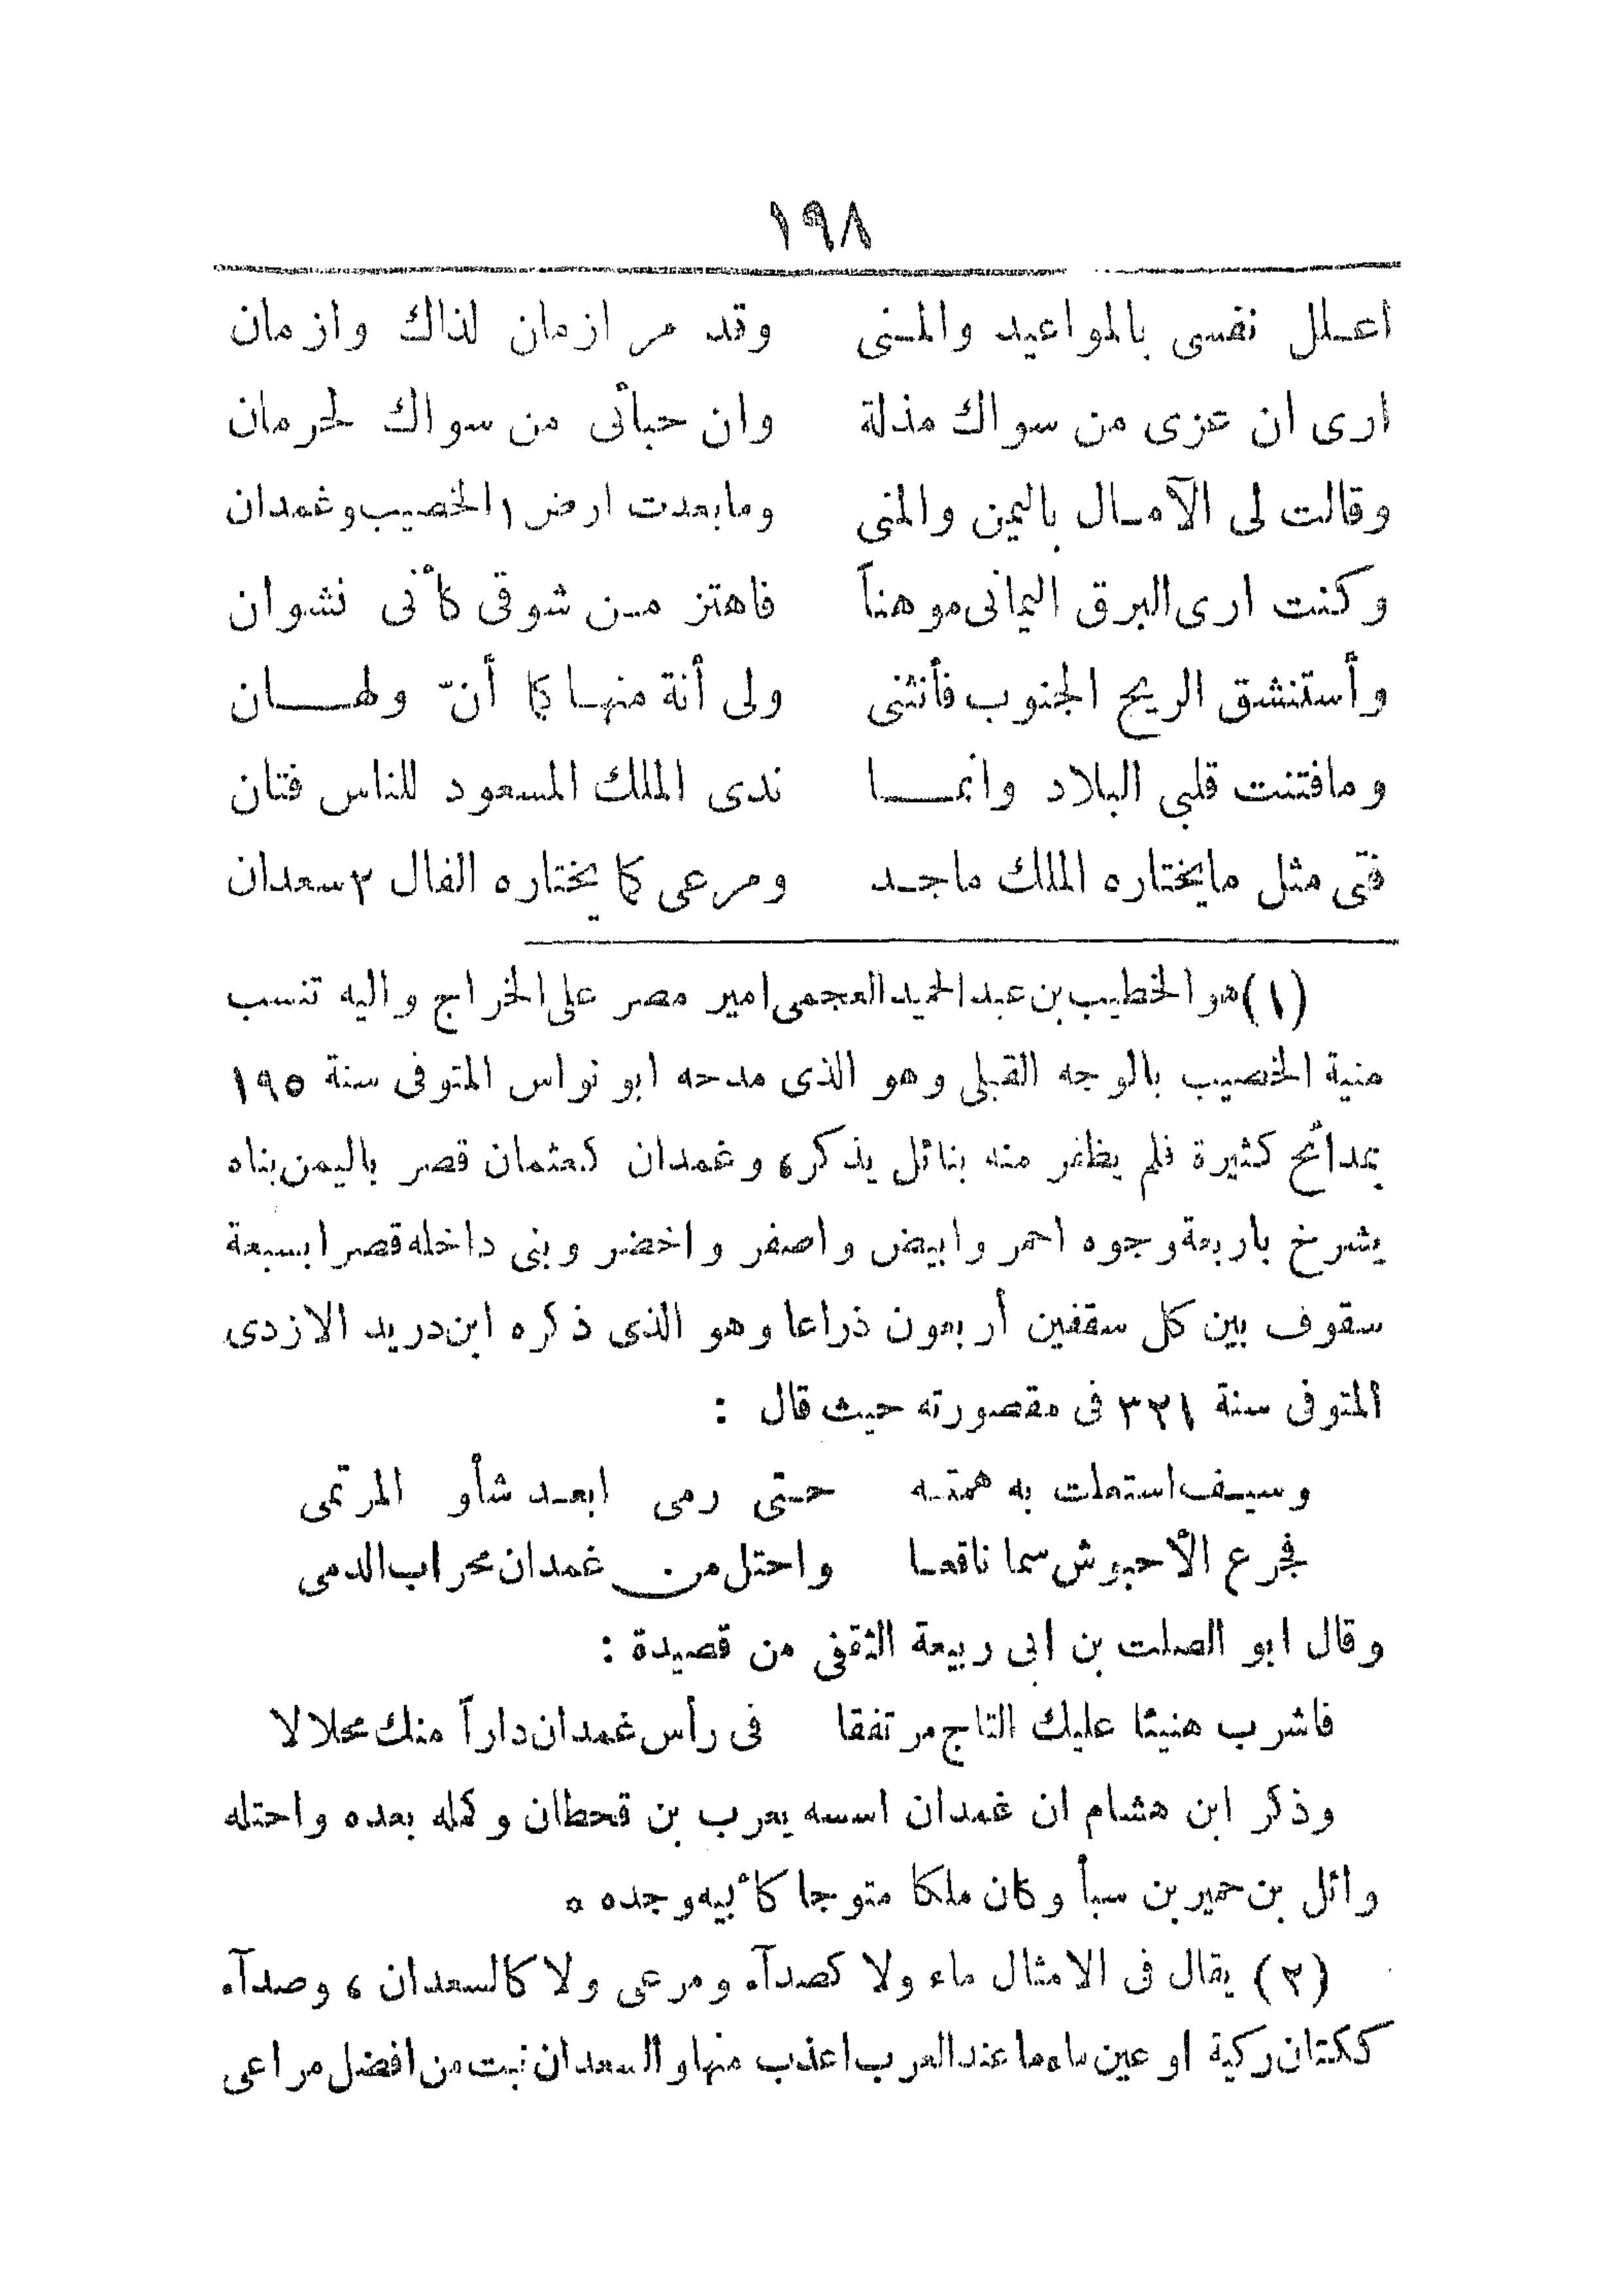 ١٩٨
اعلل نفسى بالمواعيد والمنى وقد مر ازمان لذاك وازمان
ارى ان عزى من سواك مذلة وان حبائى من سواك لحرمان
وقالت لى الآمال باليمن والمنى ومابعدت ارض ١ الخصيب وغمدان
وكنت ارى البرق اليمانى موهناً فاهتز من شوقى كأنى نشوان
وأستنشق الريح الجنوب فأنثنى ولى أنة منها كما أنّ ولهان
ومافتنت قلبي البلاد وانما ندى الملك المسعود للناس فتان
فتى مثل مايختاره الملك ماجد ومرعى كما يختاره الفال ٢ سعدان
(١) هو الخطيب بن عبد الحميد العجمى امير مصر على الخراج واليه تنسب
منية الخصيب بالوجه القبلى وهو الذى مدحه ابو نواس المتوفى سنة ١٩٥
بمدائح كثيرة فلم يظفر منه بنائل يذكر، وغمدان كعثمان قصر باليمن بناه
يشرخ باربعة وجوه احمر وابيض واصفر واخضر وبنى داخله قصرا بسبعة
سقوف بين كل سقفين أربعون ذراعا وهو الذى ذكره ابن دريد الازدى
المتوفى سنة ٣٢١ فى مقصورته حيث قال :
وسيف استعلت به همته حتى رمى ابعد شأو المرتمى
فجرع الأحبوش سما ناقعا واحتل من غمدان محراب الدمى
وقال ابو الصلت بن ابى ربيعة الثقفى من قصيدة :
فاشرب هنيئا عليك التاج مرتفقا فى رأس غمدان داراً منك محلالا
وذكر ابن هشام ان غمدان اسسه يعرب بن قحطان وكمله بعده واحتله
وائل بن حمير بن سبأ وكان ملكا متوجا كأبيه وجده ٠
(٢) يقال فى الامثال ماء ولا كصدآء ومرعى ولا كالسعدان ، وصدآء
ككتان ركية او عين ماء ما عند العرب اعذب منها والسعدان نبت من افضل مراعى